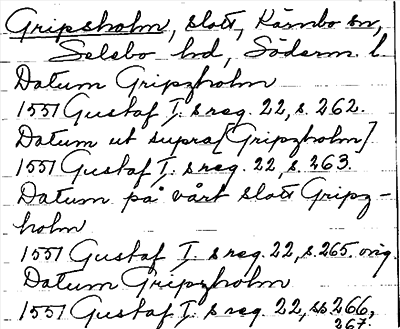 Gripsholm, slott, Kärnbo sn,
Selebo hd, Söderm. l.
Datum Gripzholm
1551 Gustaf I:s reg. 22, s. 262.
Datum ut supra [Gripzholm].
1551 Gustaf I:s reg. 22, s. 263.
Datum på vårt slott Gripz-
holm
1551 Gustaf I:s reg. 22, s. 265. orig.
Datum Gripzholm
1551 Gustaf I:s reg. 22, ss 266,
267.